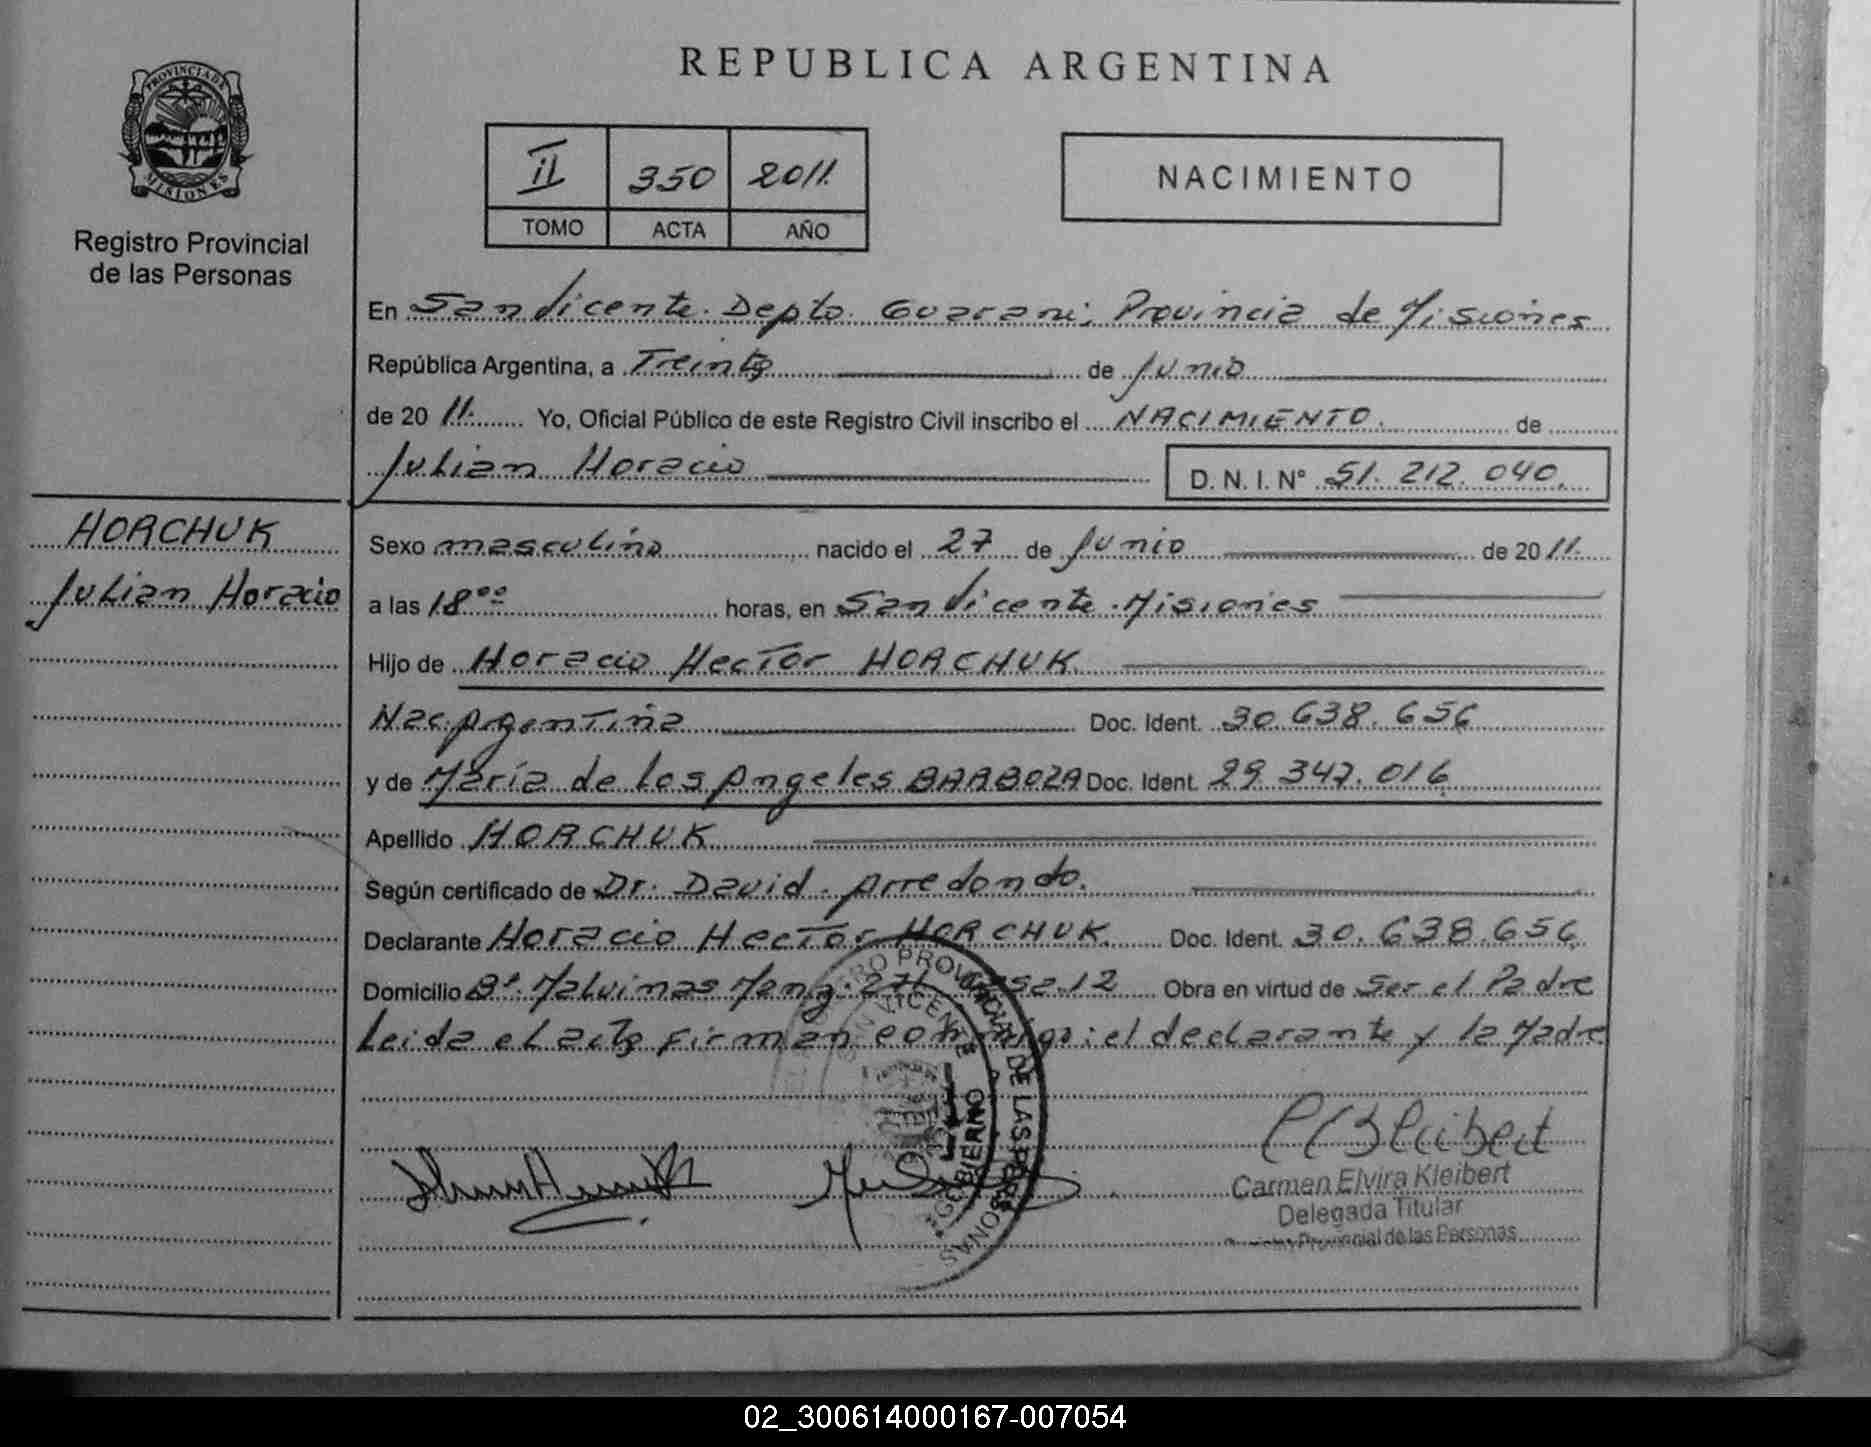 REPUBLICA ARGENTINA
PROVINCIA DE
MISIONES
Registro Provincial
de las Personas
II 350 2011.
TOMO ACTA AÑO
NACIMIENTO
En San Vicente. Depto. Guarani, Provincia de Misiones
República Argentina, a Treinta de Junio
de 20 11. Yo, Oficial Público de este Registro Civil inscribo el NACIMIENTO. de
Julian Horacio D. N. I. N° 51. 212. 040.
HORCHUK
Julian Horacio
Sexo masculino nacido el 27 de Junio de 20 11.
a las 18 00 horas, en San Vicente. Misiones
Hijo de Horacio Hector HORCHUK
Nac. Argentina Doc. Ident. 30.638.656
y de María de los Angeles BARBOZA Doc. Ident. 29.347.016
Apellido HORCHUK
Según certificado de Dr. David. Arredondo.
Declarante Horacio Hector HORCHUK. Doc. Ident. 30.638.656
Domicilio B°. Malvinas Manz. 271 casa.12 Obra en virtud de Ser el Padre
Leida el acta firman conmigo: el declarante y la Madre
REGISTRO PROVINCIAL DE LAS PERSONAS
SAN VICENTE
GOBIERNO
Carmen Elvira Kleibert
Delegada Titular
Provincial de las Personas
02_300614000167-007054